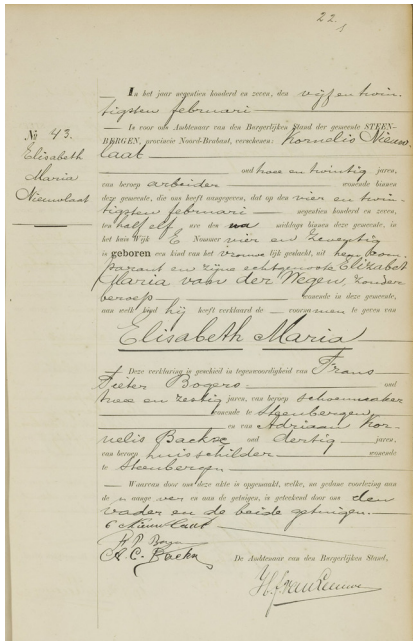 22
No 43.
Elisabeth
Maria
Nieuwlaat
In het jaar negentien honderd en zeven, den vijf en twin-
tigsten februari
Is voor ons Ambtenaar van den Burgerlijken Stand der gemeente STEEN-
BERGEN, provincie Noord-Brabant, verschenen: Kornelis Nieuw-
laat
oud twee en twintig jaren,
van beroep arbeider wonende binnen
deze gemeente, die ons heeft aangegeven, dat op den vier en twin-
tigsten februari negentien honderd en zeven,
ten half elf ure des na middags binnen deze gemeente, in
het huis Wijk E Nommer vier en zeventig
is geboren een kind van het vrouwelijk geslacht, uit hem com-
parant en zijne echtgenoote Elizabet
Maria van der Wegen, zonder
beroep wonende in deze gemeente,
aan welk kind hij heeft verklaard de voornamen te geven van
Elisabeth Maria
Deze verklaring is geschied in tegenwoordigheid van Frans
Pieter Bogers oud
twee en zestig jaren, van beroep schoenmaker
wonende te Steenbergen
en van Adriaan Kor-
nelis Backx oud dertig jaren,
van beroep huisschilder wonende
te Steenbergen
Waarvan door ons deze akte is opgemaakt, welke, na gedane voorlezing aan
de aangever en aan de getuigen, is geteekend door ons den
vader en de beide getuigen.
C Nieuwlaat
F. P. Bogers
A. C. Backx
De Ambtenaar van den Burgerlijken Stand,